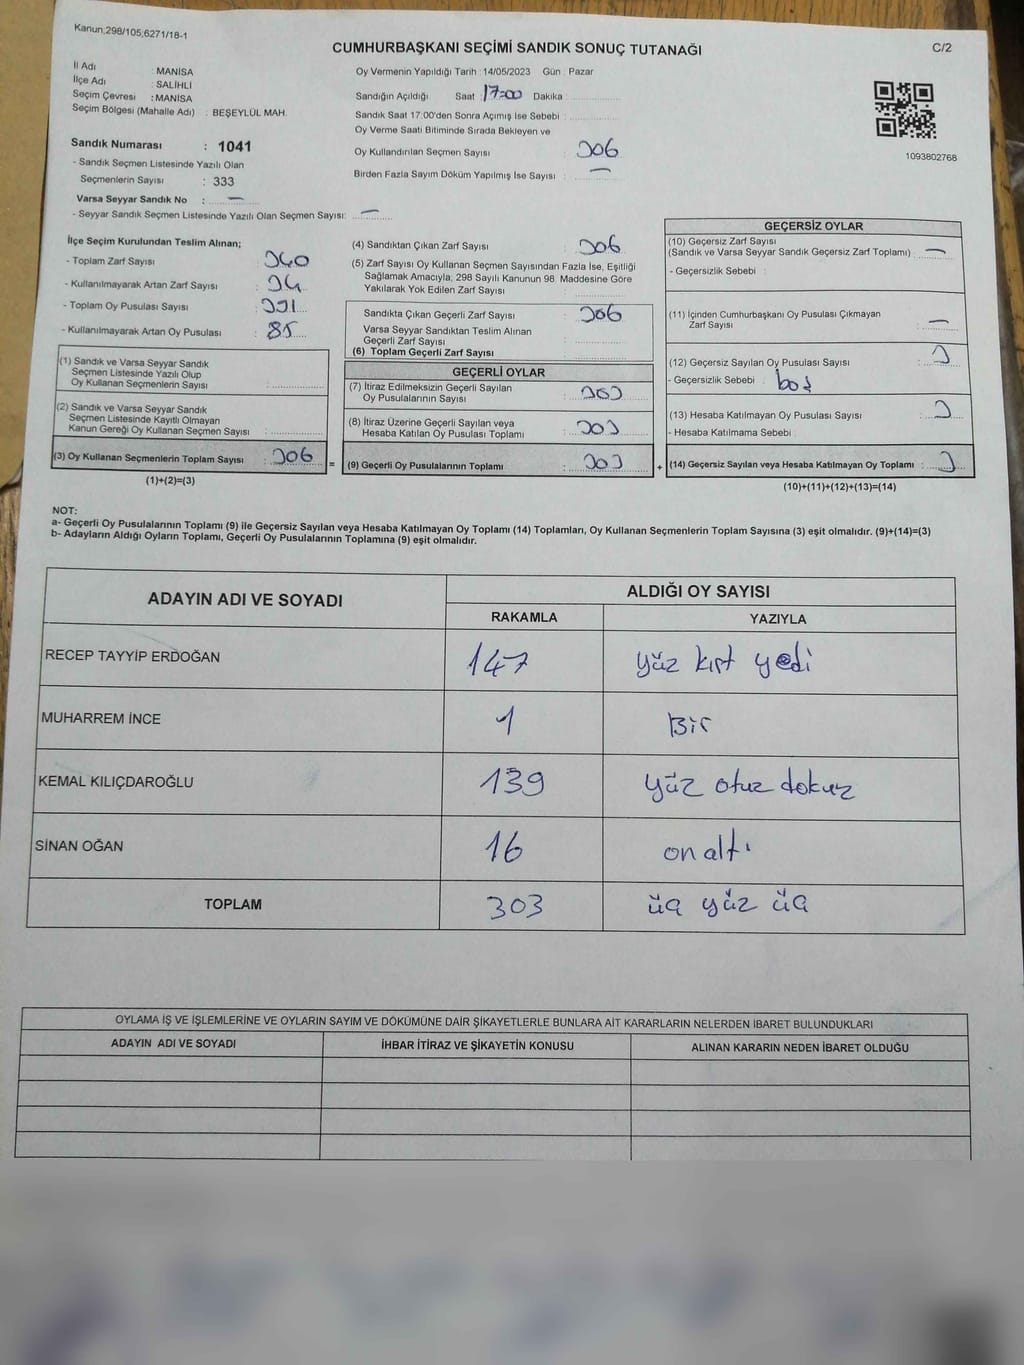 Kanun;298/105,6271/18-1
CUMHURBAŞKANI SEÇİMİ SANDIK SONUÇ TUTANAĞI
C/2
İl Adı : MANİSA
İlçe Adı : SALİHLİ
Seçim Çevresi : MANİSA
Seçim Bölgesi (Mahalle Adı) : BEŞEYLÜL MAH.
Sandık Numarası : 1041
- Sandık Seçmen Listesinde Yazılı Olan
Seçmenlerin Sayısı : 333
Varsa Seyyar Sandık No : —
- Seyyar Sandık Seçmen Listesinde Yazılı Olan Seçmen Sayısı: —
Oy Vermenin Yapıldığı Tarih : 14/05/2023 Gün : Pazar
Sandığın Açıldığı Saat : 17:00 Dakika
Sandık Saat 17.00'den Sonra Açımış İse Sebebi :
Oy Verme Saati Bitiminde Sırada Bekleyen ve
Oy Kullandırılan Seçmen Sayısı : 306
Birden Fazla Sayım Döküm Yapılmış İse Sayısı : —
1093802768
İlçe Seçim Kurulundan Teslim Alınan;
- Toplam Zarf Sayısı : 340
- Kullanılmayarak Artan Zarf Sayısı : 34
- Toplam Oy Pusulası Sayısı : 391
- Kullanılmayarak Artan Oy Pusulası : 85
(1) Sandık ve Varsa Seyyar Sandık
Seçmen Listesinde Yazılı Olup
Oy Kullanan Seçmenlerin Sayısı :
(2) Sandık ve Varsa Seyyar Sandık
Seçmen Listesinde Kayıtlı Olmayan
Kanun Gereği Oy Kullanan Seçmen Sayısı :
(3) Oy Kullanan Seçmenlerin Toplam Sayısı : 306
(1)+(2)=(3)
=
(4) Sandıktan Çıkan Zarf Sayısı : 306
(5) Zarf Sayısı Oy Kullanan Seçmen Sayısından Fazla İse, Eşitliği
Sağlamak Amacıyla, 298 Sayılı Kanunun 98. Maddesine Göre
Yakılarak Yok Edilen Zarf Sayısı :
Sandıkta Çıkan Geçerli Zarf Sayısı : 306
Varsa Seyyar Sandıktan Teslim Alınan
Geçerli Zarf Sayısı :
(6) Toplam Geçerli Zarf Sayısı :
GEÇERLİ OYLAR
(7) İtiraz Edilmeksizin Geçerli Sayılan
Oy Pusulalarının Sayısı : 303
(8) İtiraz Üzerine Geçerli Sayılan veya
Hesaba Katılan Oy Pusulası Toplamı : 303
(9) Geçerli Oy Pusulalarının Toplamı : 303
+
GEÇERSİZ OYLAR
(10) Geçersiz Zarf Sayısı
(Sandık ve Varsa Seyyar Sandık Geçersiz Zarf Toplamı) : —
- Geçersizlik Sebebi :
(11) İçinden Cumhurbaşkanı Oy Pusulası Çıkmayan
Zarf Sayısı : —
(12) Geçersiz Sayılan Oy Pusulası Sayısı : 3
- Geçersizlik Sebebi : boş
(13) Hesaba Katılmayan Oy Pusulası Sayısı : 3
- Hesaba Katılmama Sebebi :
(14) Geçersiz Sayılan veya Hesaba Katılmayan Oy Toplamı : 3
(10)+(11)+(12)+(13)=(14)
NOT:
a- Geçerli Oy Pusulalarının Toplamı (9) ile Geçersiz Sayılan veya Hesaba Katılmayan Oy Toplamı (14) Toplamları, Oy Kullanan Seçmenlerin Toplam Sayısına (3) eşit olmalıdır. (9)+(14)=(3)
b- Adayların Aldığı Oyların Toplamı, Geçerli Oy Pusulalarının Toplamına (9) eşit olmalıdır.
ADAYIN ADI VE SOYADI
ALDIĞI OY SAYISI
RAKAMLA YAZIYLA
RECEP TAYYİP ERDOĞAN 147 yüz kırt yedi
MUHARREM İNCE 1 Bir
KEMAL KILIÇDAROĞLU 139 yüz otuz dokuz
SİNAN OĞAN 16 on altı
TOPLAM 303 üç yüz üç
OYLAMA İŞ VE İŞLEMLERİNE VE OYLARIN SAYIM VE DÖKÜMÜNE DAİR ŞİKAYETLERLE BUNLARA AİT KARARLARIN NELERDEN İBARET BULUNDUKLARI
ADAYIN ADI VE SOYADI İHBAR İTİRAZ VE ŞİKAYETİN KONUSU ALINAN KARARIN NEDEN İBARET OLDUĞU